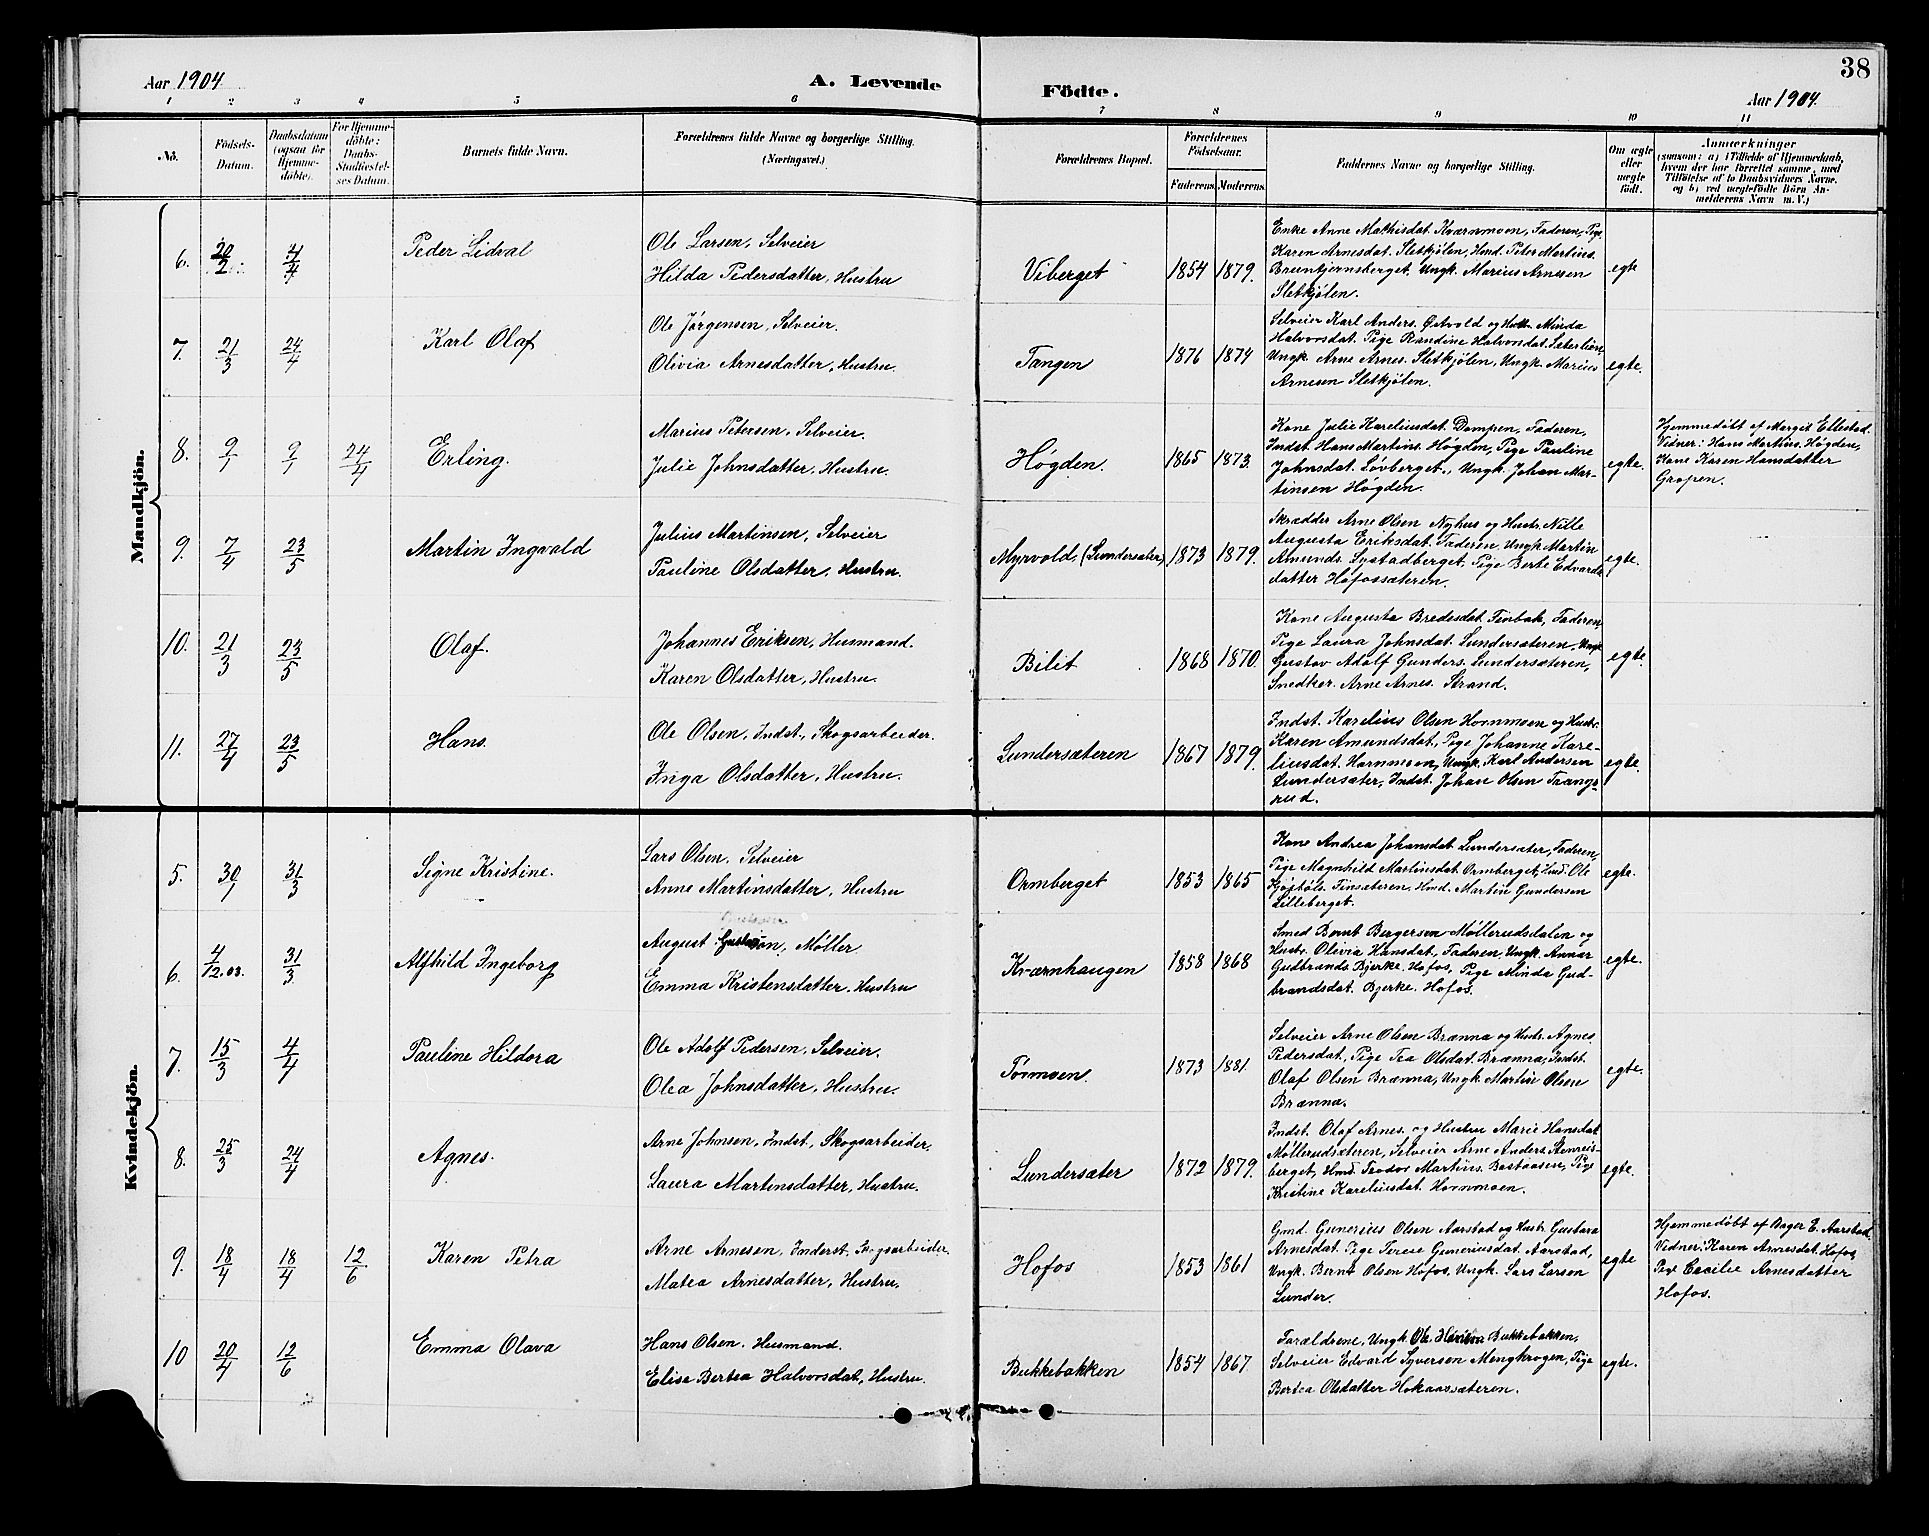 38
Aar 1904
A. Levende
Födte.
Aar 1904.
1 2 3 4 5 6 7 8 9 10 11
No.
Födsels-
Datum.
Daabsdatum
(ogsaa for
Hjemme-
döbte).
For Hjemme-
döbte:
Daabs-
Stadfæstel-
ses Datum.
Barnets fulde Navn.
Forældrenes fulde Navne og borgerlige Stilling.
(Næringsvei.)
Forældrenes Bopæl.
Forældrenes
Födselsaar.
Faderens.
Moderens.
Faddernes Navne og borgerlige Stilling.
Om ægte
eller
uægte
födt.
Anmærkninger
(saasom: a) i Tilfælde af Hjemmedaab,
hvem der har forrettet samme, med
Tilföielse af to Daabsvidners Navne,
og b) ved uægtefödte Börn An-
melderens Navn m. V.)
Mandkjön.
6. 20/2 4/4
Peder Lidval
Ole Larsen, Selveier
Hilda Pedersdatter, Hustru
Viberget
1854 1879.
Enke Anne Mathisdat. Kværnmoen, Faderen, Pige
Karen Arnesdat. Sletkjølen, Hmd. Peter Martins.
Bruntjernsberget, Ungk. Marius Arnesen
Sletkjølen.
egte
7. 21/3 24/4
Karl Olaf
Ole Jørgensen, Selveier.
Olivia Arnesdatter, Hustru
Tangen
1876 1874
Selveier Karl Anders. Østvold og Hustr. Minda
Halvorsdat. Pige Randine Halvorsdat. Sæterlien,
Ungk. Arne Arnes. Sletkjølen, Ungk. Marius
Arnesen Sletkjølen.
egte.
8. 9/1 9/1 24/4
Erling.
Marius Petersen, Selveier.
Julie Johnsdatter, Hustru
Høgden.
1865 1873.
Kone Julie Kareliusdat. Dompen, Faderen,
Indst. Hans Martins. Høgden, Pige Pauline
Johnsdat. Løvberget., Ungk. Johan Mar-
tinsen Høgden.
egte.
Hjemmedøbt af Margit Ellestad.
Vidner: Hans Martins. Høgden,
Kone Karen Hansdatter
Gropen.
9. 7/4 23/5
Martin Ingvald
Julius Martinsen, Selveier
Pauline Olsdatter, Hustru.
Myrvold, (Lundersæter)
1873 1879.
Skrædder Arne Olsen Nyhus og Hustr. Nille
Augusta Eriksdat. Faderen, Ungk. Martin
Amunds. Systadberget, Pige Berte Edvards-
datter Hofossæteren.
egte.
10. 21/3 23/5
Olaf.
Johannes Eriksen, Husmand.
Karen Olsdatter, Hustru.
Bilit
1868 1870.
Kone Augusta Bredesdat. Finbak, Faderen,
Pige Laura Johnsdat. Lundersæteren, Ungk.
Gustav Adolf Gunders. Lundersæteren,
Snedker. Arne Arnes. Strand.
egte.
11. 27/4 23/5
Hans.
Ole Olsen, Indst., Skogsarbeider.
Inga Olsdatter, Hustru.
Lundersæteren
1867 1879.
Indst. Karelius Olsen Hornmoen og Hustr.
Karen Amundsdat., Pige Johanne Kare-
liusdat. Hornmoen, Ungk. Karl Andersen
Lundersæter, Indst. Johan Olsen Trangs-
rud.
egte.
Kvindekjön.
5. 30/1 31/3
Signe Kristine.
Lars Olsen, Selveier
Anne Martinsdatter, Hustru
Ormberget
1853 1865
Kone Andrea Johansdat. Lundersæter, Faderen,
Pige Magnhild Martinsdat. Ormberget, Ind. Ole
Finsæteren. Hmd. Martin Gundersen
Lilleberget.
egte.
6. 4/12.03. 31/3
Alfhild Ingeborg
August Møller.
Emma Kristensdatter, Hustru
Kværnhaugen
1858 1868
Smed Bernt Bergersen Møllerudsdalen og
Hustr. Olivia Hansdat, Faderen, Ungk. Annar
Gudbrands. Bjerke. Hofos, Pige Minda Gud-
brandsdat. Bjerke. Hofos.
egte.
7. 15/3 4/4
Pauline Hildora
Ole Adolf Pedersen, Selveier.
Olea Johnsdatter, Hustru.
Tørmoen.
1873 1881.
Selveier Arne Olsen Brænna og Hustr. Agnes
Pedersdat., Pige Tea Olsdat. Brænna, Indst.
Olaf Olsen Brænna, Ungk. Martin Olsen
Brænna.
egte.
8. 25/3 24/4
Agnes.
Arne Johnsen, Indst., Skogsarbeider.
Laura Martinsdatter, Hustru.
Lundersæter
1872 1879.
Indst. Olaf Arnes. og Hustru Marie Hansdat.
Møllerudsæteren, Selveier Arne Anders.
berget, Hmd. Teodor Martins. Bastaasen, Pige
Kristine Kareliusdat. Hornmoen.
egte.
9. 18/4 18/4 12/6
Karen Petra
Arne Arnesen, Inderst. Skogsarbeider.
Matea Arnesdatter, Hustru,
Hofos
1853 1861
Gmd. Gunerius Olsen Aarstad og Hustr. Gustava
Arnesdat. Pige Terese Guneriusdat. Aarstad,
Ungk. Bernt Olsen Hofos, Ungk. Lars Larsen
Lunder.
egte
Hjemmedøbt af Dager E. Aarstad,
Vidner: Karen Arnesdat. Hofos,
Cecilie Arnesdatter
Hofos.
10 20/4 12/6
Emma Olava
Hans Olsen. Husmand.
Elise Bertea Halvorsdat., Hustru.
Bukkebakken
1854 1867.
Forældrene, Ungk. Ole Bukkebakken,
Selveier Edvard Syversen Mengkrogen, Pige
Bertea Olsdatter Hokaassæteren.
egte.